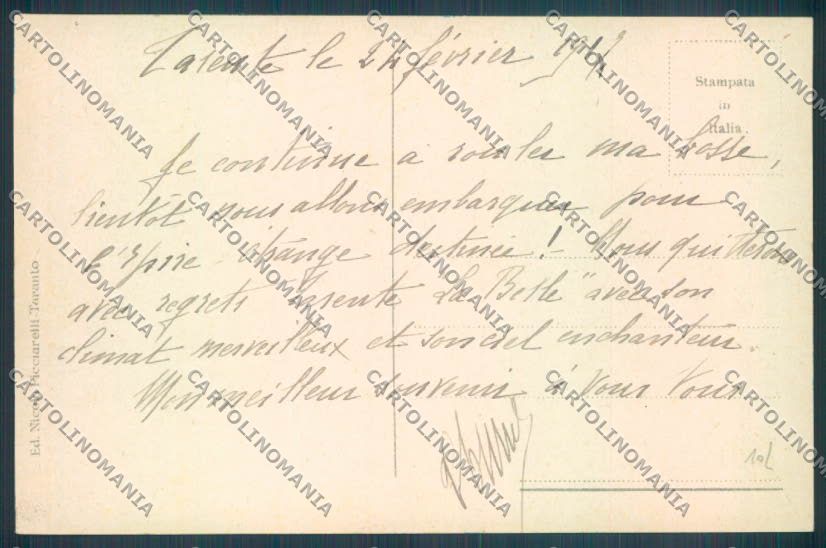 Tarente le 24 février 191
Stampata
in
Italia.
Je continue à rouler ma bosse,
bientôt nous allons embarquer pour
l'Epire étrange destinée! - Nous quitterons
avec regrets Tarente "La Belle" avec son
climat merveilleux et son ciel enchanteur.
Mon meilleur souvenir à vous tous
Ed. Nicola Picciarelli-Taranto
CARTOLINOMANIA